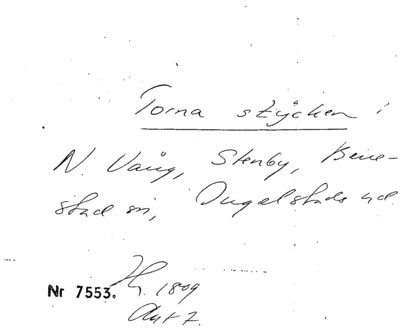 Torna stycken i
N. Vång, Stenby, Bene-
stad sn, Ingelstads hd.
Nr 7553. H. 1809
Akt 7.